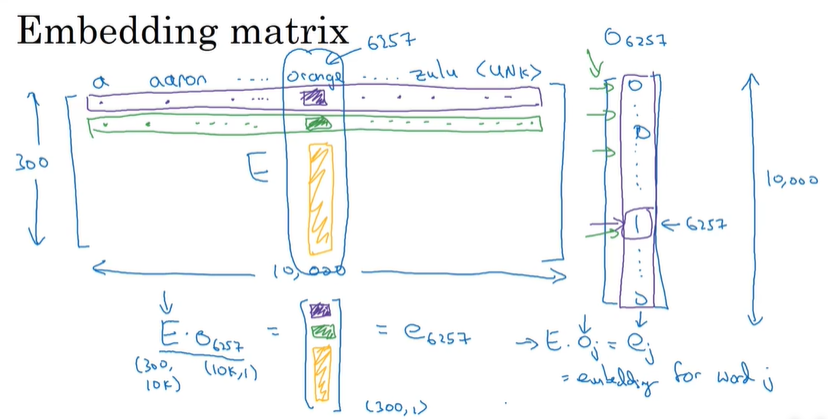 Embedding matrix
6257
O6257
a aaron .... orange .... zulu <UNK>
300
E
0
0
1
0
← 6257
10,000
10,000
E · O6257 = [ ] = e6257
(300, 10K) (10K, 1)
(300, 1)
→ E · Oj = ej
= embedding for word j